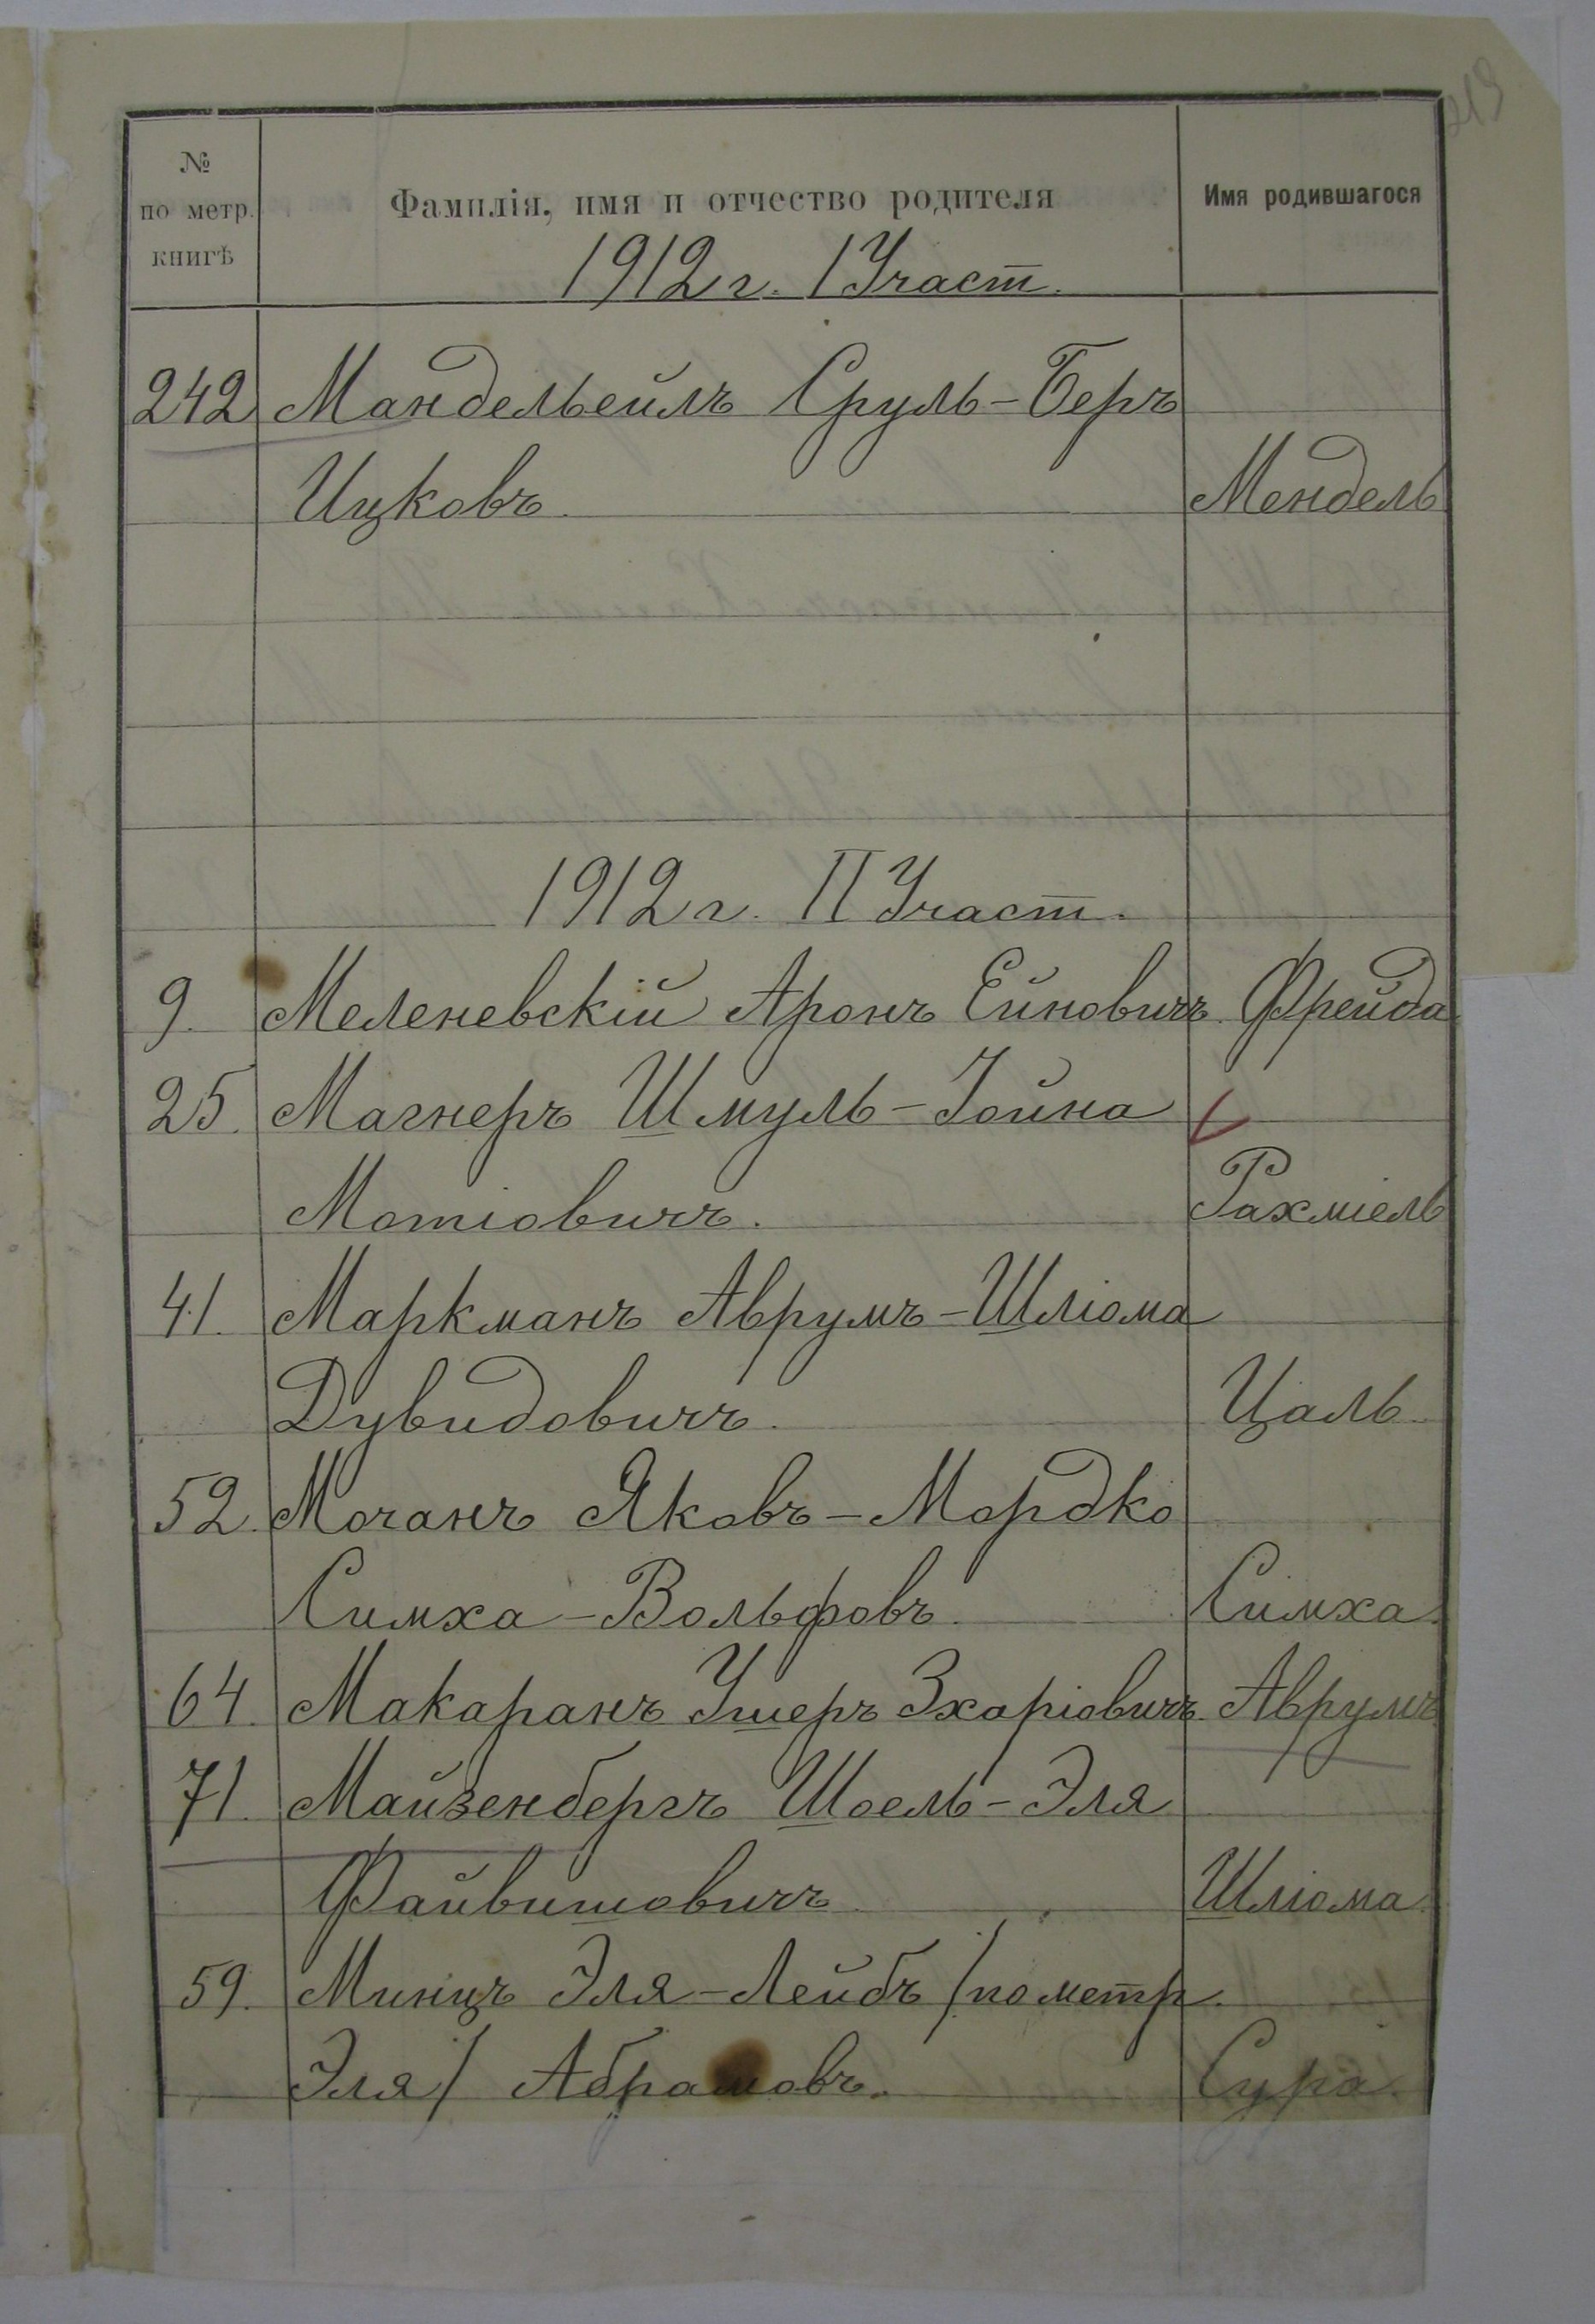 219
№ по метр. книгѣ
Фамилія, имя и отчество родителя
Имя родившагося
1912 г. I Участ.
242 Мандельейлъ Сруль-Беръ
Ицковъ. Мендель
1912 г. II Участ.
9. Меленевскій Аронъ Ейновичъ Фрейда
25. Магнеръ Шмуль-Іойна
Мотіовичъ. Рахміель
41. Маркманъ Аврумъ-Шліома
Дувидовичъ. Цаль.
52. Мочанъ Яковъ-Мордко
Симха-Вольфовъ. Симха.
64. Макаранъ Ушеръ Зхаріовичъ. Аврумъ
71. Майзенбергъ Шоель-Эля
Файвишовичъ Шліома.
59. Минцъ Эля-Лейбъ /по метр.
Эля/ Абрамовъ. Сура.